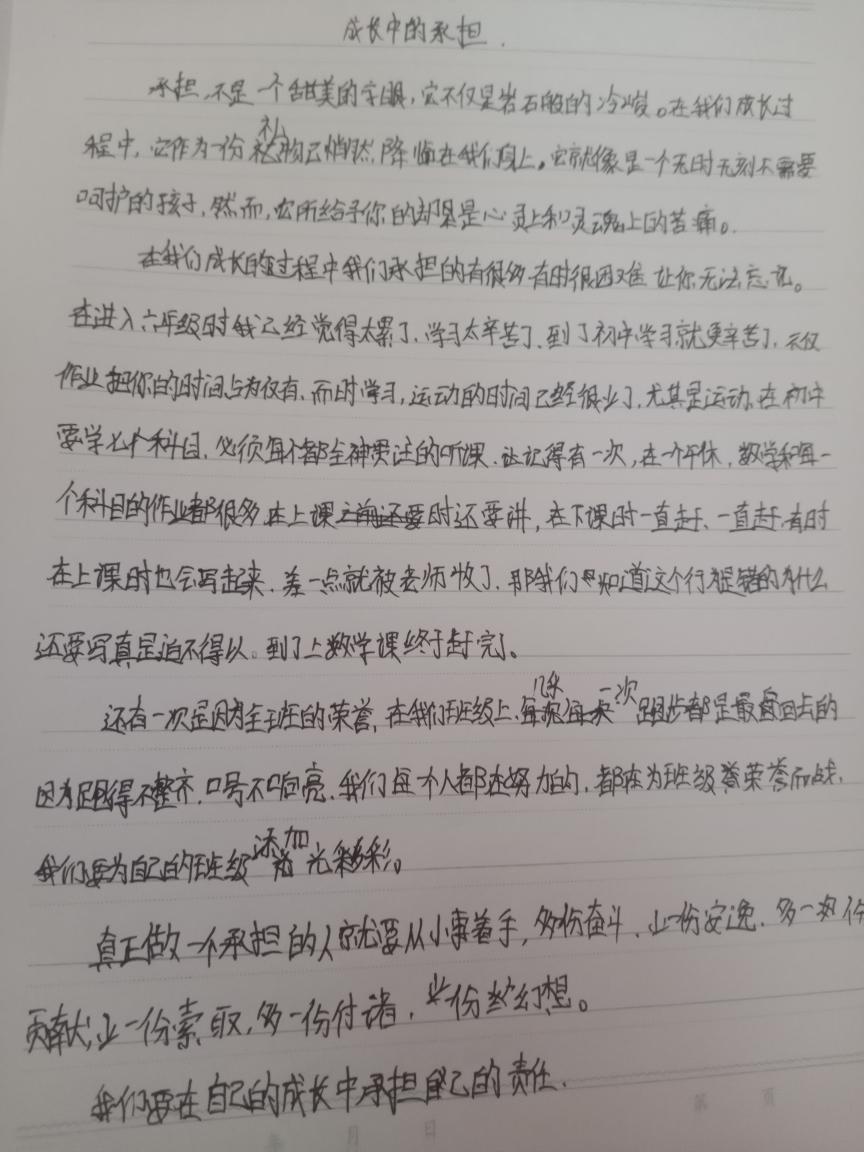 成长中的承担.
承担,不是一个甜美的字眼,它不仅是岩石般的冷峻。在我们成长过
程中,它作为一份礼物已悄然降临在我们身上。它就像是一个无时无刻不需要
呵护的孩子,然而,它所给予你的却是心灵上和灵魂上的苦痛。
在我们成长的过程中我们承担的有很多有时很困难让你无法忘记。
在进入六年级时我已经觉得太累了,学习太辛苦了,到了初中学习就更辛苦了,不仅
作业把你的时间占为仅有,而时学习,运动的时间已经很少了,尤其是运动,在初中
要学七个科目,必须每个都全神贯注的听课,还记得有一次,在一个午休,数学和每一
个科目的作业都很多,在上课时还要讲,在下课时一直赶、一直赶,有时
在上课时也会写起来,差一点就被老师收了,那我们知道这个行为是错的为什么
还要写真是迫不得以。到了上数学课终于赶完了。
还有一次是因为全班的荣誉,在我们班级上,几乎一次跑步都是最后回去的
因为跑得不整齐,口号不响亮,我们每个人都在努力的,都在为班级荣誉而战,
我们要为自己的班级添加光彩。
真正做一个承担的人就要从小事着手,多份奋斗,少一份安逸,多一份
贡献,少一份索取,多一份付诸,少份幻想。
我们要在自己的成长中承担自己的责任.
年 月 日
第 页